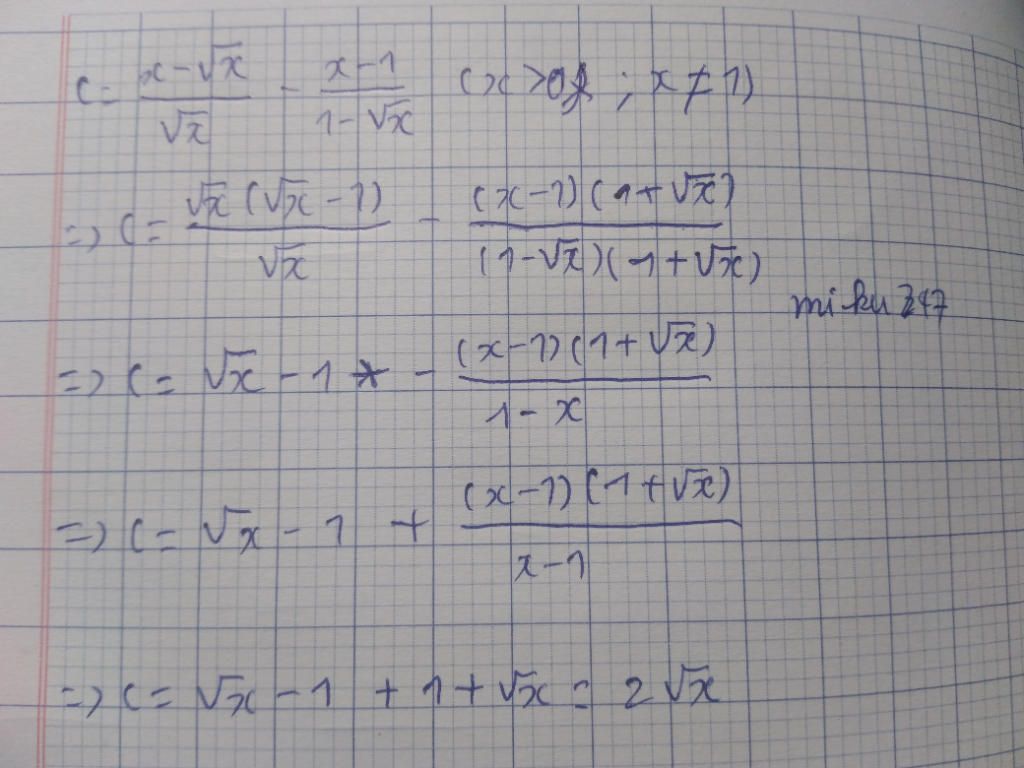 C = (x-√x)/√x - (x-1)/(1-√x) (x > 0 ; x ≠ 1)
=> C = √x(√x-1)/√x - (x-1)(1+√x)/(1-√x)(1+√x)
miku 247
=> C = √x - 1 - (x-1)(1+√x)/(1-x)
=> C = √x - 1 + (x-1)(1+√x)/(x-1)
=> C = √x - 1 + 1 + √x = 2√x